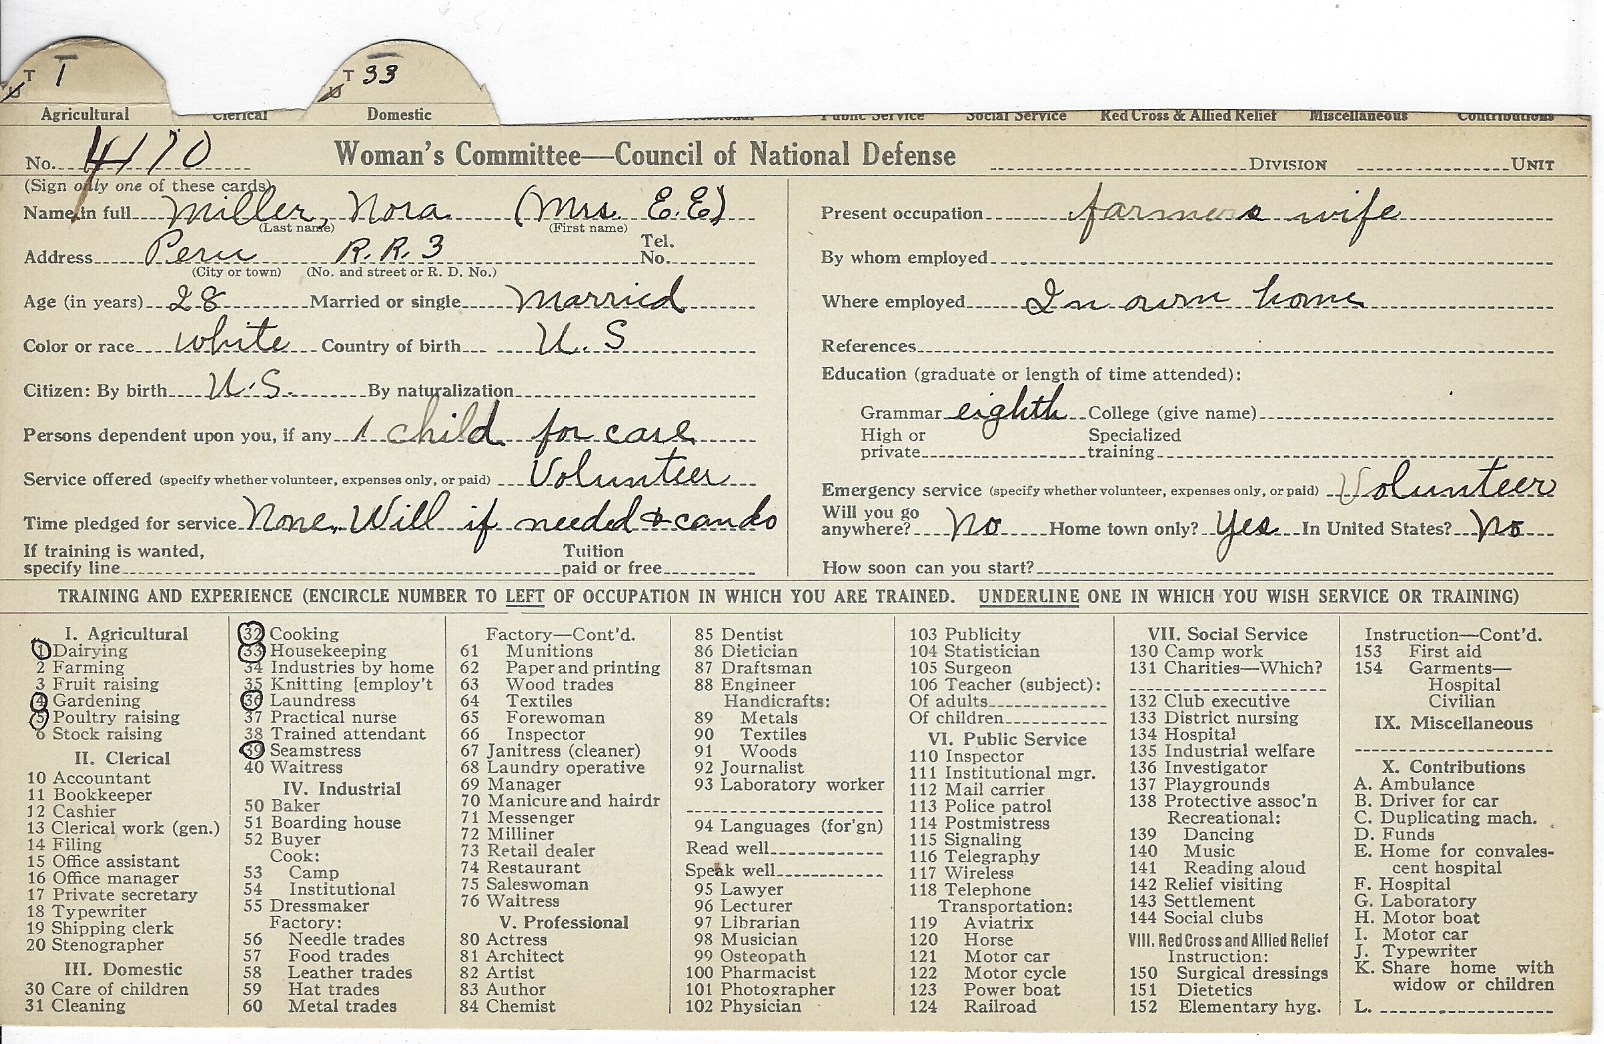 T 1
T 33
Agricultural Clerical Domestic Public Service Social Service Red Cross & Allied Relief Miscellaneous Contributions
No. 4170 Woman's Committee—Council of National Defense DIVISION UNIT
(Sign only one of these cards)
Name in full Miller, Nora (Mrs. E.E.)
(Last name) (First name)
Address Peru R.R. 3 Tel. No.
(City or town) (No. and street or R. D. No.)
Age (in years) 28 Married or single Married
Color or race white Country of birth U. S
Citizen: By birth U.S. By naturalization
Persons dependent upon you, if any 1 child for care
Service offered (specify whether volunteer, expenses only, or paid) Volunteer
Time pledged for service None, Will if needed & can do
If training is wanted, specify line Tuition paid or free
Present occupation farmers wife
By whom employed
Where employed In own home
References
Education (graduate or length of time attended):
Grammar eighth College (give name)
High or private Specialized training
Emergency service (specify whether volunteer, expenses only, or paid) Volunteer
Will you go anywhere? No Home town only? Yes In United States? No
How soon can you start?
TRAINING AND EXPERIENCE (ENCIRCLE NUMBER TO LEFT OF OCCUPATION IN WHICH YOU ARE TRAINED. UNDERLINE ONE IN WHICH YOU WISH SERVICE OR TRAINING)
I. Agricultural
1 Dairying
2 Farming
3 Fruit raising
4 Gardening
5 Poultry raising
6 Stock raising
II. Clerical
10 Accountant
11 Bookkeeper
12 Cashier
13 Clerical work (gen.)
14 Filing
15 Office assistant
16 Office manager
17 Private secretary
18 Typewriter
19 Shipping clerk
20 Stenographer
III. Domestic
30 Care of children
31 Cleaning
32 Cooking
33 Housekeeping
34 Industries by home
35 Knitting [employ't
36 Laundress
37 Practical nurse
38 Trained attendant
39 Seamstress
40 Waitress
IV. Industrial
50 Baker
51 Boarding house
52 Buyer
Cook:
53 Camp
54 Institutional
55 Dressmaker
Factory:
56 Needle trades
57 Food trades
58 Leather trades
59 Hat trades
60 Metal trades
Factory—Cont'd.
61 Munitions
62 Paper and printing
63 Wood trades
64 Textiles
65 Forewoman
66 Inspector
67 Janitress (cleaner)
68 Laundry operative
69 Manager
70 Manicure and hairdr
71 Messenger
72 Milliner
73 Retail dealer
74 Restaurant
75 Saleswoman
76 Waitress
V. Professional
80 Actress
81 Architect
82 Artist
83 Author
84 Chemist
85 Dentist
86 Dietician
87 Draftsman
88 Engineer
Handicrafts:
89 Metals
90 Textiles
91 Woods
92 Journalist
93 Laboratory worker
94 Languages (for'gn)
Read well
Speak well
95 Lawyer
96 Lecturer
97 Librarian
98 Musician
99 Osteopath
100 Pharmacist
101 Photographer
102 Physician
103 Publicity
104 Statistician
105 Surgeon
106 Teacher (subject):
Of adults
Of children
VI. Public Service
110 Inspector
111 Institutional mgr.
112 Mail carrier
113 Police patrol
114 Postmistress
115 Signaling
116 Telegraphy
117 Wireless
118 Telephone
Transportation:
119 Aviatrix
120 Horse
121 Motor car
122 Motor cycle
123 Power boat
124 Railroad
VII. Social Service
130 Camp work
131 Charities—Which?
132 Club executive
133 District nursing
134 Hospital
135 Industrial welfare
136 Investigator
137 Playgrounds
138 Protective assoc'n
Recreational:
139 Dancing
140 Music
141 Reading aloud
142 Relief visiting
143 Settlement
144 Social clubs
VIII. Red Cross and Allied Relief
Instruction:
150 Surgical dressings
151 Dietetics
152 Elementary hyg.
Instruction—Cont'd.
153 First aid
154 Garments—
Hospital
Civilian
IX. Miscellaneous
X. Contributions
A. Ambulance
B. Driver for car
C. Duplicating mach.
D. Funds
E. Home for convales-
cent hospital
F. Hospital
G. Laboratory
H. Motor boat
I. Motor car
J. Typewriter
K. Share home with
widow or children
L.